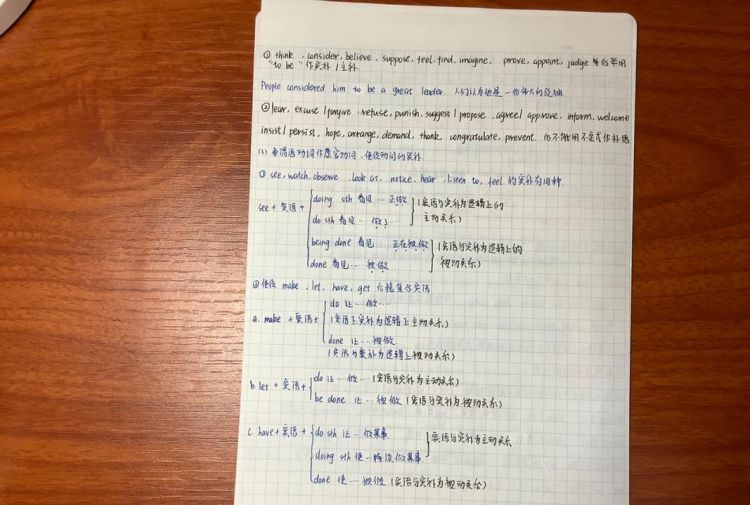 ① think , consider, believe, suppose, feel, find, imagine, prove, appoint, judge 等后常用
"to be" 作宾补/主补
People considered him to be a great leader. 人们认为他是一位伟大的领袖
② fear, excuse / forgive, refuse, punish, suggest / propose, agree / approve, inform, welcome
insist / persist, hope, arrange, demand, thank, congratulate, prevent. 后不能用不定式作补语
(2) 非谓语动词作感官动词、使役动词的宾补
① see, watch, observe, look at, notice, hear, listen to, feel 的宾补为四种
see + 宾语 +
doing sth 看见…正做
do sth 看见…做了…
(宾语与宾补为逻辑上的
主动关系)
being done 看见…正在被做
done 看见…被做
(宾语与宾补为逻辑上的
被动关系)
② 使役 make, let, have, get 后接复合宾语
a. make + 宾语 +
do 让…做…
(宾语与宾补为逻辑上主动关系)
done 让…被做
(宾语与宾补为逻辑上被动关系)
b. let + 宾语 +
do 让…做…(宾语与宾补为主动关系)
be done 让…被做 (宾语与宾补为被动关系)
c. have + 宾语 +
do sth 让…做某事
doing sth 使…持续做某事
宾语与宾补为主动关系
done 使…被做 (宾语与宾补为被动关系)